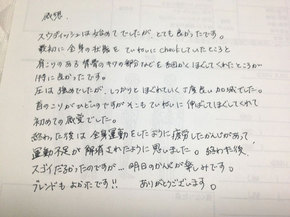 感想
スウェディッシュは初めてでしたが、とても良かったです。
最初に全身の状態をていねいにcheckしていたところと
肩こりのある 背骨のキワの部分などを 何回かほぐしてくれたところが
特に良かったです。
圧は強めでしたが、しっかりとほぐれていく丁度良い加減でした。
首のこりがひどいのですが そこもていねいに伸ばしてほぐしてくれて
初めての感覚でした。
終わった後は 全身運動をしたように疲労したかんじがあって
運動不足が解消されたように思いました。終わった後、
スゴイだるかったのですが… 明日のからだが楽しみです。
ブレンドもよかったです!! ありがとうございます。